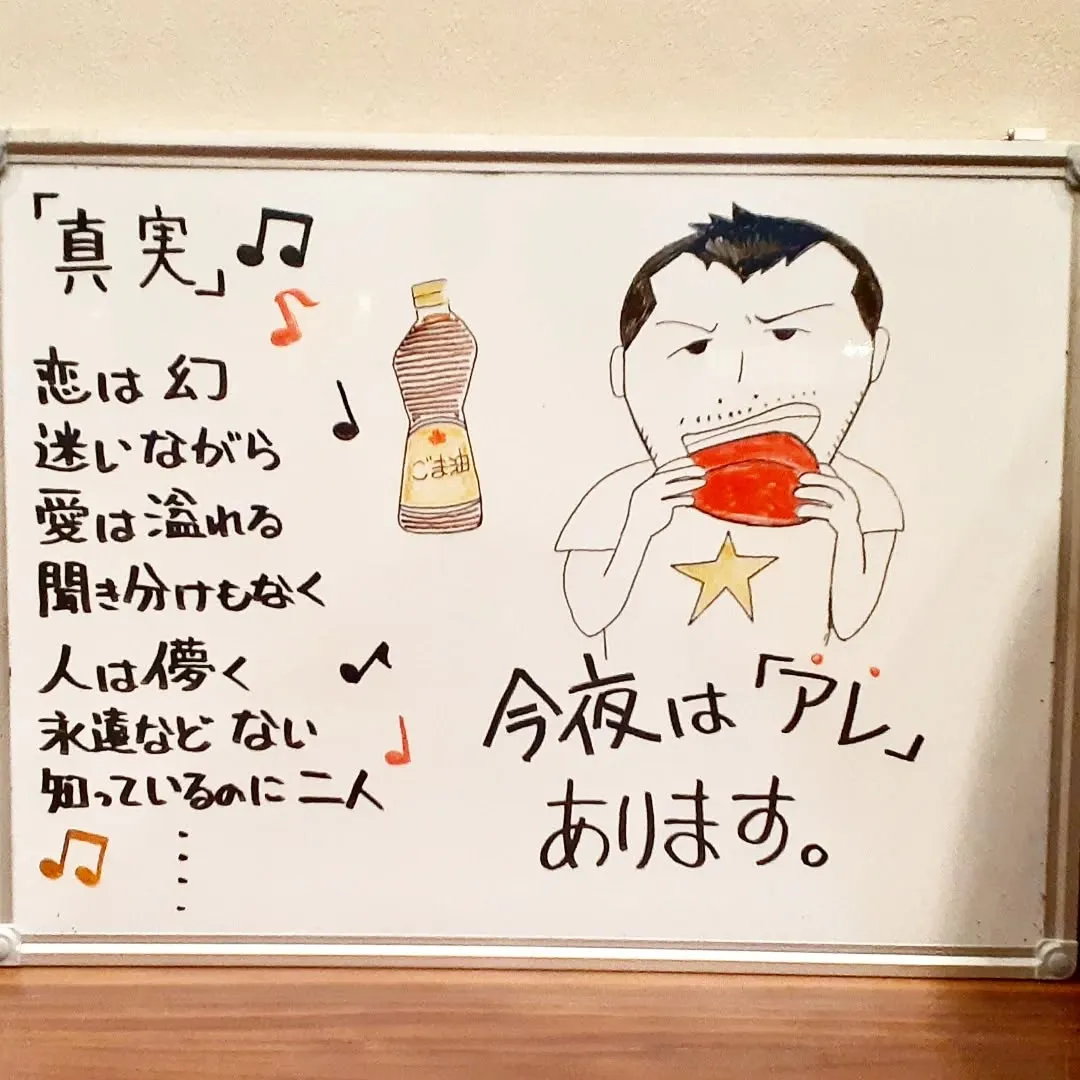 「真実」
恋は幻
迷いながら
愛は溢れる
聞き分けもなく
人は儚く
永遠など ない
知っているのに二人
⋮
ごま油
今夜は「アレ」
あります。